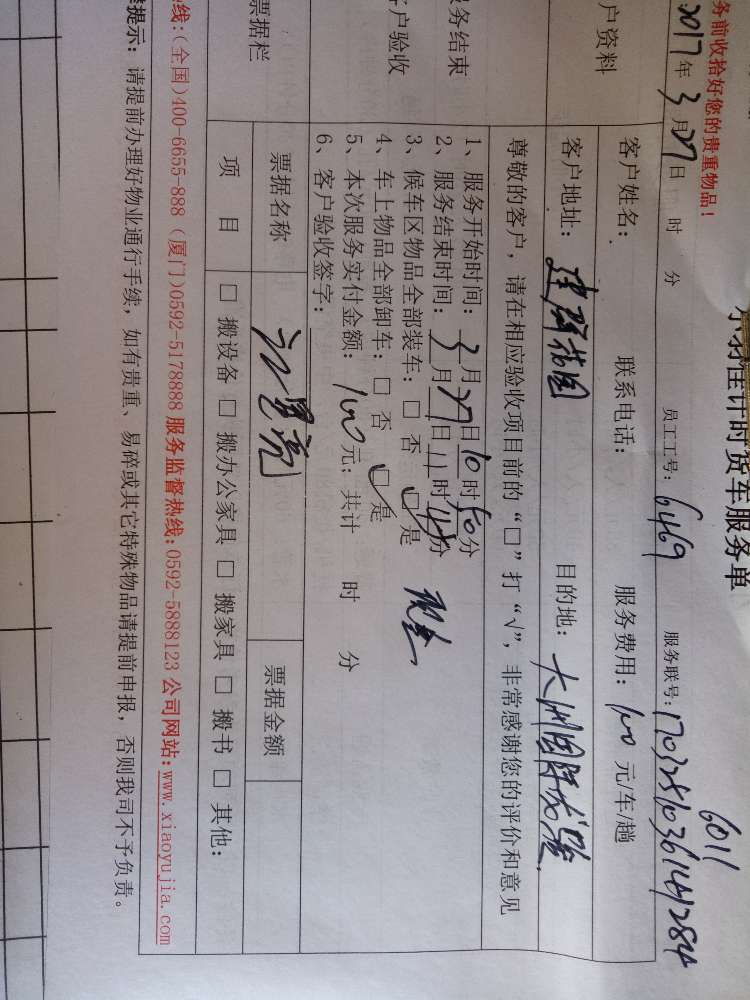 计时货车服务单
务前收拾好您的贵重物品!
6011
2017年3月27日 时 分 员工工号: 6469 服务联号: 170325103614284
户资料
客户姓名: 联系电话: 服务费用: 100 元/车/趟
客户地址: 目的地: 大洲国际龙郡
尊敬的客户,请在相应验收项目前的“□”打“√”,非常感谢您的评价和意见
务结束
户验收
1、服务开始时间: 3月27日10时50分
2、服务结束时间: 3月27日11时45分
3、候车区物品全部装车: □ 否 □ 是
4、车上物品全部卸车: □ 否 □ 是
5、本次服务实付金额: 100元;共计 时 分
6、客户验收签字:
票据栏
票据名称 票据金额
项 目 □ 搬设备 □ 搬办公家具 □ 搬家具 □ 搬书 □ 其他:
线:(全国)400-6655-888 (厦门)0592-5178888 服务监督热线:0592-5888123 公司网站:www.xiaoyujia.com
提示: 请提前办理好物业通行手续,如有贵重、易碎或其它特殊物品请提前申报,否则我司不予负责。